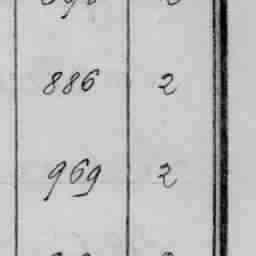 886 2
969 2